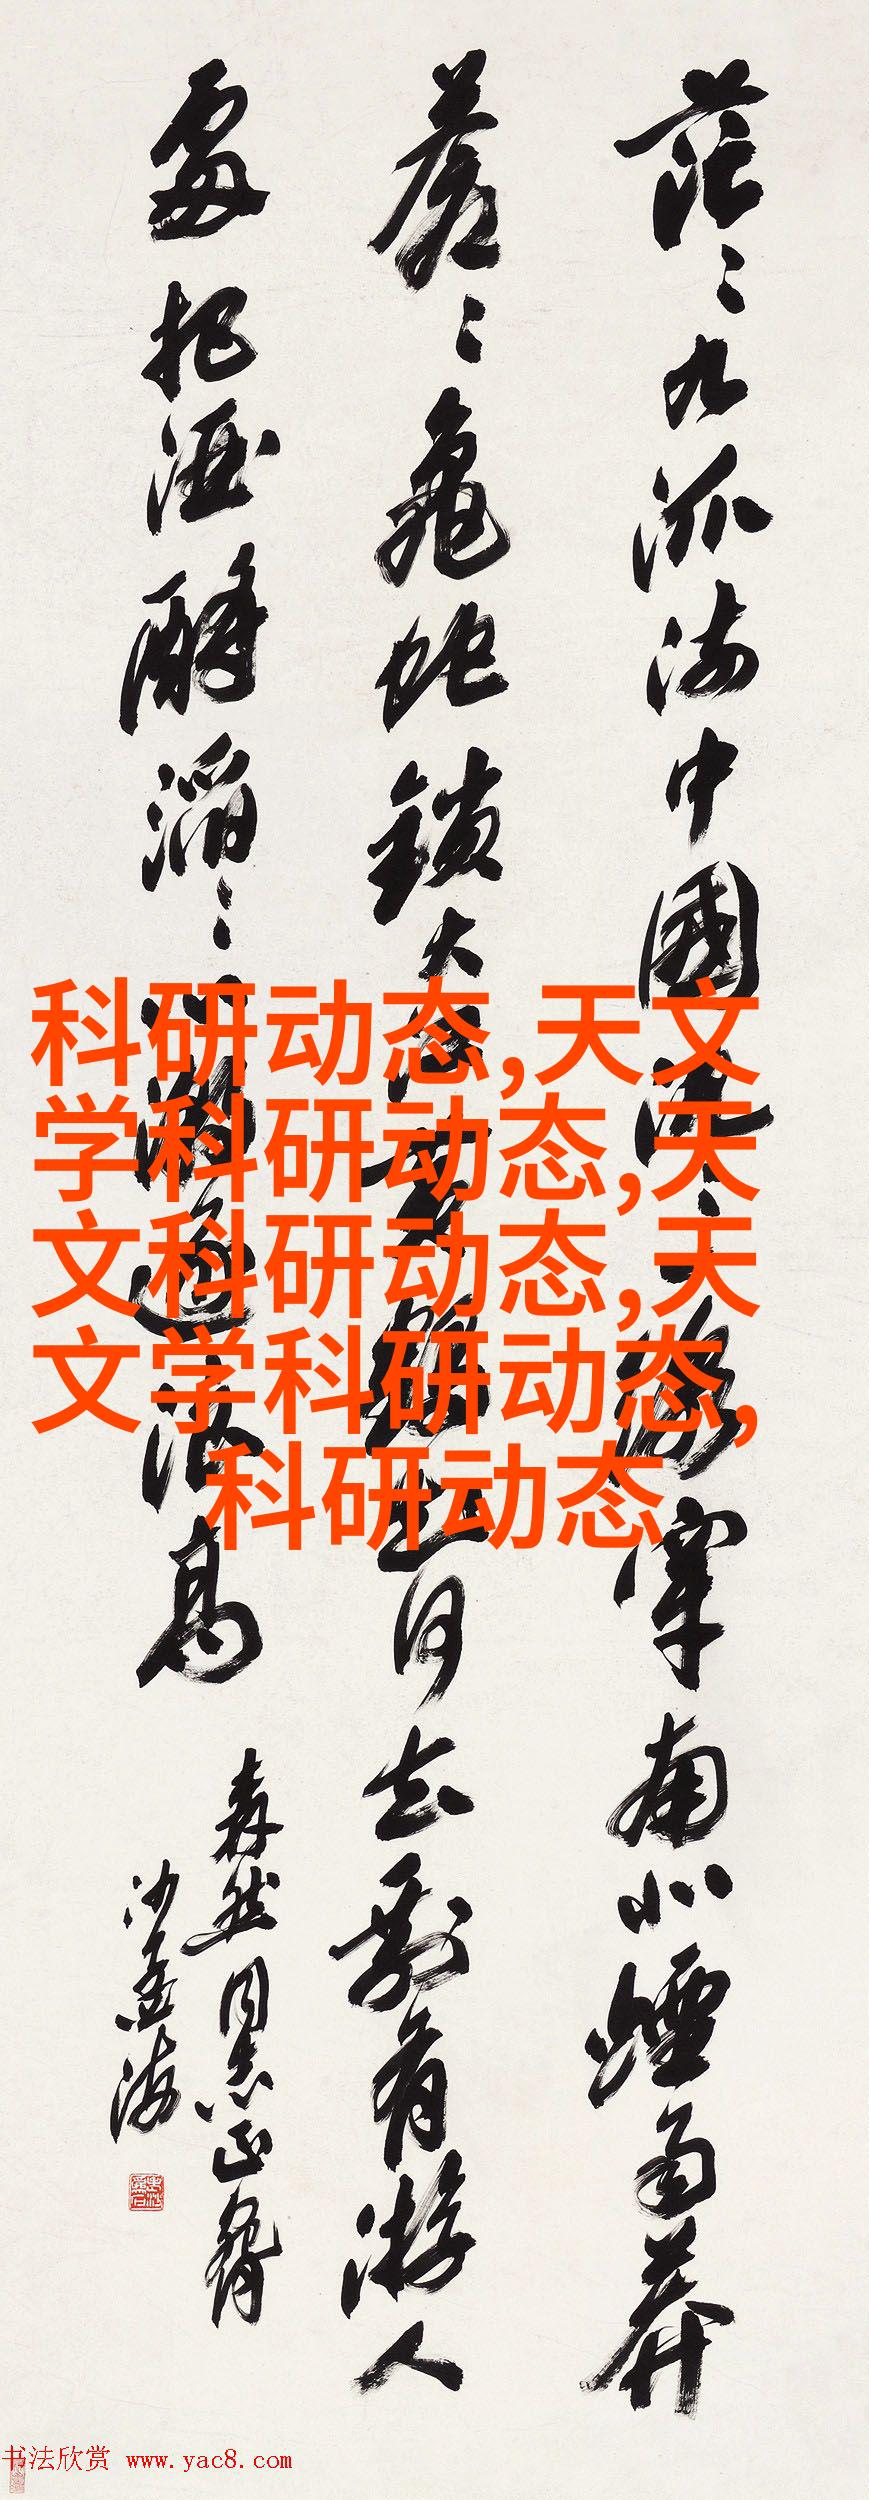 茫〻九派流中國沉〻一線穿南北煙雨莽
蒼〻龜蛇鎖大江黃鶴知何去剩有游人
處把酒酹滔〻心潮逐浪高
森然同志正
沙孟海
科研动态,天文
学科研动态,天
文科研动态,天
文学科研动态,
科研动态
书法欣赏 www.yac8.com